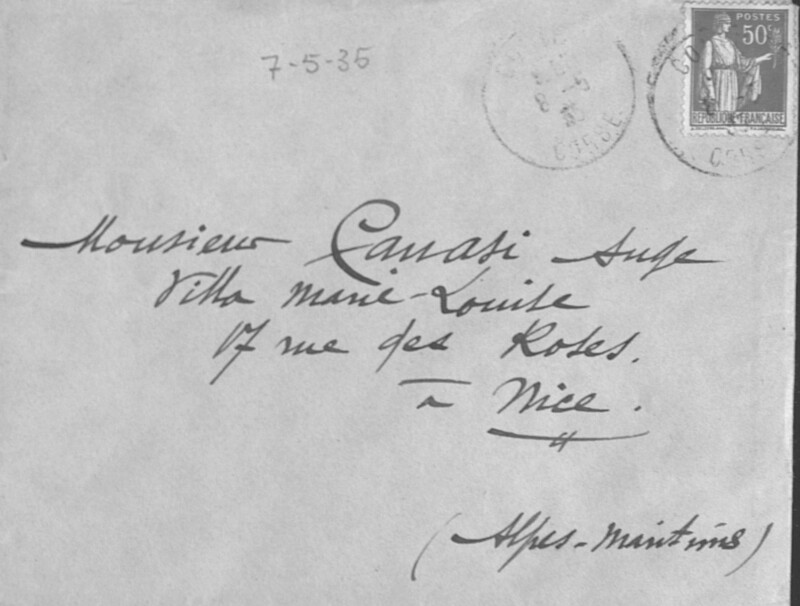 7-5-35
POSTES
50c
RÉPUBLIQUE FRANÇAISE
CORSE
CORSE
Monsieur Canasi Ange
Villa Marie-Louise
17 rue des Roses.
à Nice.
(Alpes-Maritimes)